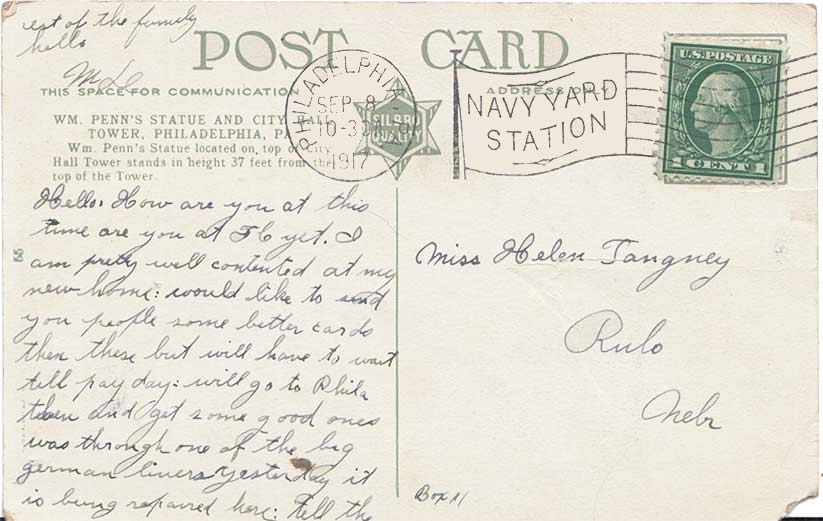 rest of the family
hello
POST CARD
THIS SPACE FOR COMMUNICATION
ADDRESS ONLY
WM. PENN'S STATUE AND CITY HALL
TOWER, PHILADELPHIA, PA.
Wm. Penn's Statue located on top of City
Hall Tower stands in height 37 feet from the
top of the Tower.
SILBRO
QUALITY
PHILADELPHIA
SEP 8
10-30
1917
PA.
NAVY YARD
STATION
U.S. POSTAGE
1 CENT 1
Hello: How are you at this
time are you at FC yet. I
am pretty well contented at my
new home: would like to send
you people some better cards
then these but will have to wait
till pay day: will go to Phila
then and get some good ones
was through one of the big
german liners yesterday it
is being repaired here: Tell the
Miss Helen Tangney
Rulo
Nebr
Box 11